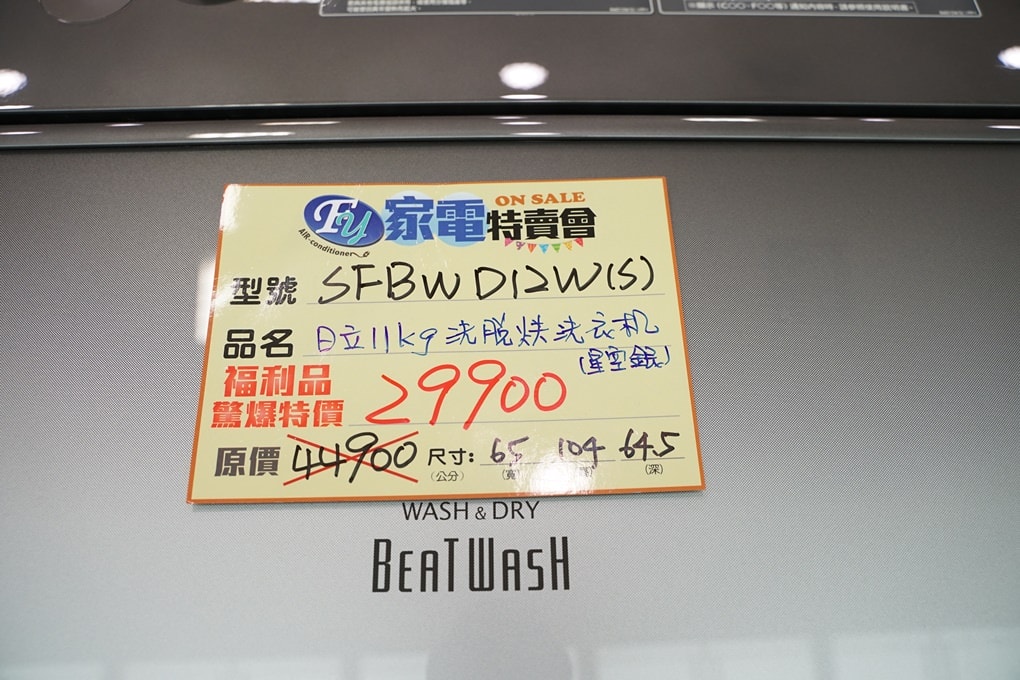 ON SALE
Fy 家電特賣會
AIR-conditioner
型號 SFBWD12W(S)
品名 日立11kg洗脫烘洗衣机
(星空銀)
福利品
驚爆特價 29900
原價 44900 尺寸: 65 104 64.5
(公分) (寬) (深)
WASH & DRY
BEATWASH